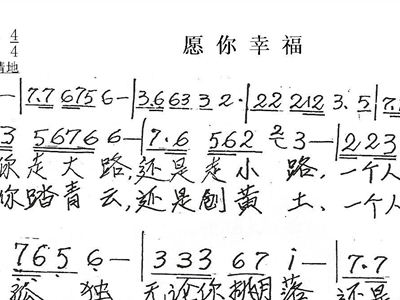 4/4 愿你幸福
情地
— | 7.7 6756 — | 3.663 32. | 22 212 3.5 | 7.
3 56766 — | 7.6 562 2 3 — | 223
你走大路,还是走小路,一个人
你踏青云,还是刨黄土、一个
7656 — | 333 67 i — | 7.7
孤独无论你 落 还是